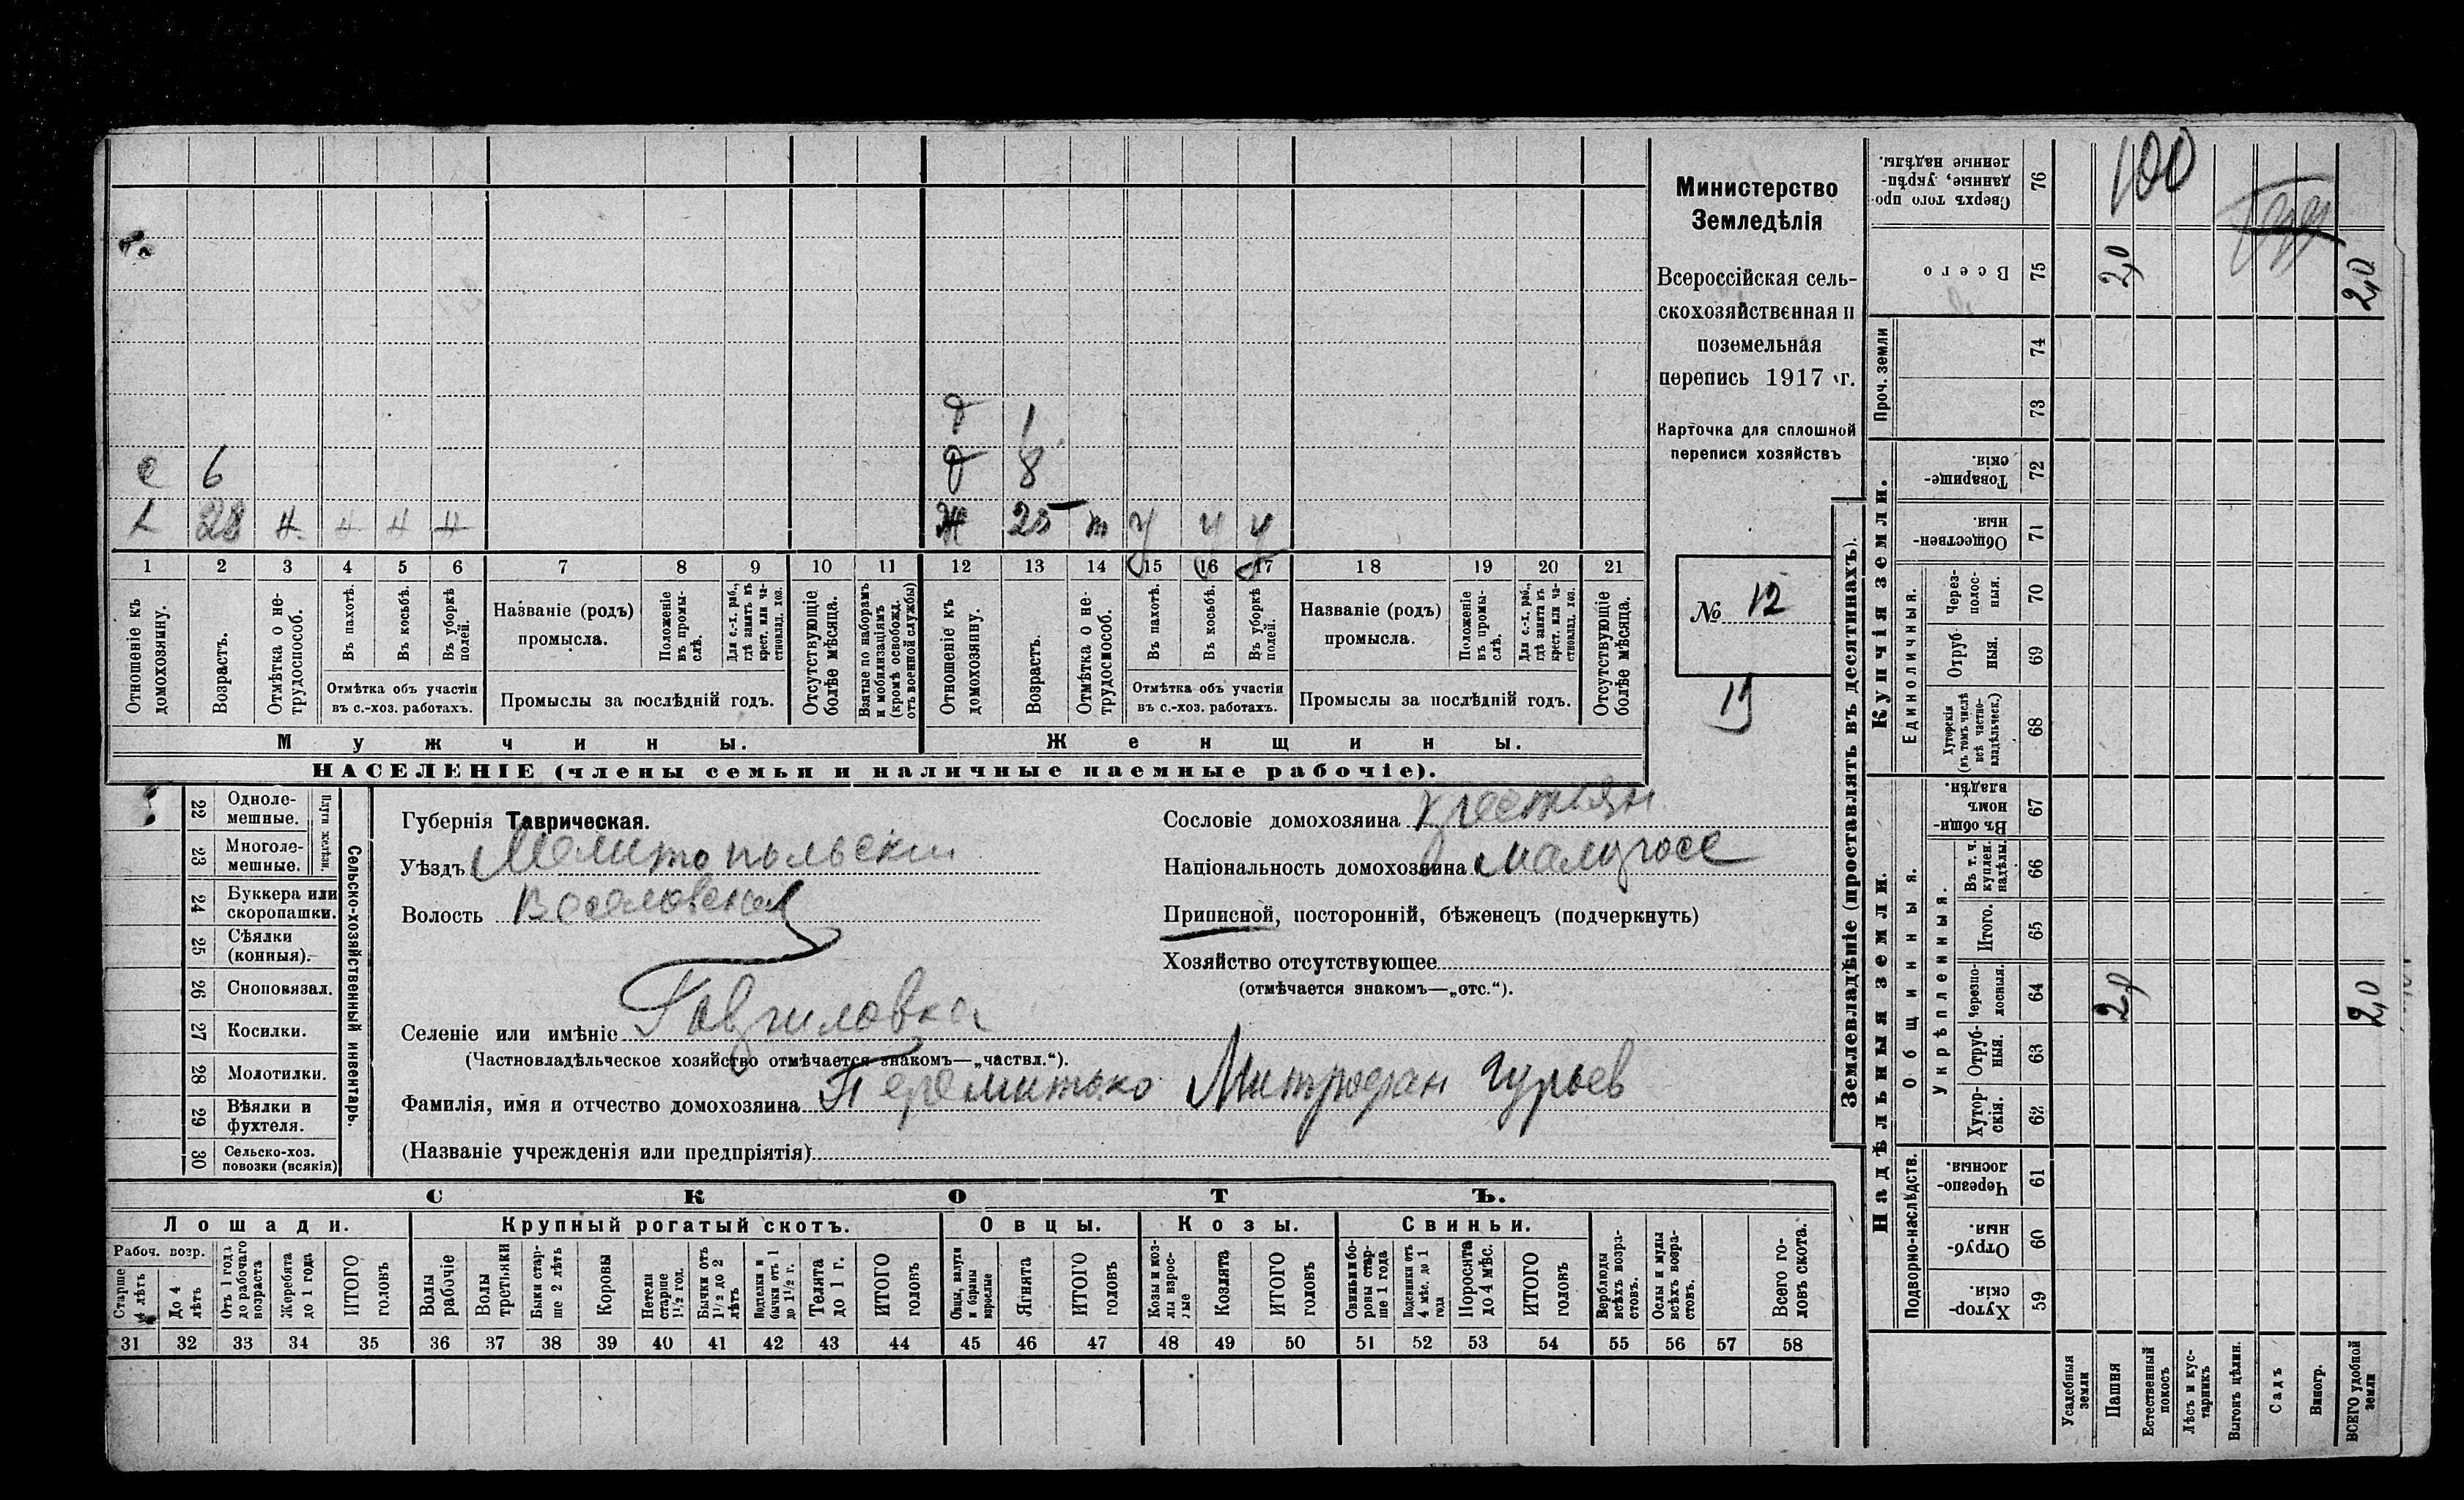 Министерство
Земледѣлія
Всероссійская сель-
скохозяйственная и
поземельная
перепись 1917 г.
Карточка для сплошной
переписи хозяйствъ
№ 12
19
1 8
б 6 8
28 Ж 25
1 2 3 4 5 6 7 8 9 10 11 12 13 14 15 16 17 18 19 20 21
Отношеніе къ домохозяину.
Возрастъ.
Отмѣтка о не-трудоспособ.
Въ пахотѣ.
Въ косьбѣ.
Въ уборкѣ полей.
Отмѣтка объ участіи
въ с.-хоз. работахъ.
Названіе (родъ)
промысла.
Положеніе въ промы-слѣ.
Для с.-х. раб., гдѣ занятъ въ крест. или ча-стновлад. хоз.
Промыслы за послѣдній годъ.
Отсутствующіе болѣе мѣсяца.
Взятые по наборамъ и мобилизаціямъ (кромѣ освобожд. отъ военной службы)
Отношеніе къ домохозяину.
Возрастъ.
Отмѣтка о не-трудоспособ.
Въ пахотѣ.
Въ косьбѣ.
Въ уборкѣ полей.
Отмѣтка объ участіи
въ с.-хоз. работахъ.
Названіе (родъ)
промысла.
Положеніе въ промы-слѣ.
Для с.-х. раб., гдѣ занята въ крест. или ча-стновлад. хоз.
Промыслы за послѣдній годъ.
Отсутствующіе болѣе мѣсяца.
Мужчины.
Женщины.
НАСЕЛЕНІЕ (члены семьи и наличные наемные рабочіе).
22 Одноле-мешные.
23 Многоле-мешные.
Плуги желѣзн.
24 Буккера или скоропашки.
25 Сѣялки (конныя).
26 Сноповязал.
27 Косилки.
28 Молотилки.
29 Вѣялки и фухтеля.
30 Сельско-хоз. повозки (всякія)
Сельско-хозяйственный инвентарь.
Губернія Таврическая.
Уѣздъ Мелитопольскій
Волость
Селеніе или имѣніе Гавриловка
(Частновладѣльческое хозяйство отмѣчается знакомъ—„частвл.“).
Фамилія, имя и отчество домохозяина Перемитько Митрофан Гурьев
(Названіе учрежденія или предпріятія)
Сословіе домохозяина крестьян
Національность домохозяина малоросс
Приписной, посторонній, бѣженецъ (подчеркнуть)
Хозяйство отсутствующее
(отмѣчается знакомъ—„отс.“).
СКОТЪ.
Лошади.
Крупный рогатый скотъ.
Овцы.
Козы.
Свиньи.
Рабоч. возр.
Старше 4 лѣтъ
До 4 лѣтъ
Отъ 1 года до рабочаго возраста
Жеребята до 1 года
ИТОГО головъ
Волы рабочіе
Волы третьяки
Быки стар-ше 2 лѣтъ
Коровы
Нетели старше 1½ год.
Бычки отъ 1½ до 2 лѣтъ
Подтелки и бычки отъ 1 до 1½ г.
Телята до 1 г.
ИТОГО головъ
Овцы, валухи и бараны взрослые
Ягнята
ИТОГО головъ
Козы и коз-лы взрос-лые
Козлята
ИТОГО головъ
Свиньи и бо-ровы стар-ше 1 года
Подсвинки отъ 4 мѣс. до 1 года
Поросята до 4 мѣс.
ИТОГО головъ
Верблюды всѣхъ возра-стовъ.
Ослы и мулы всѣхъ возра-стовъ.
Всего го-ловъ скота.
31 32 33 34 35 36 37 38 39 40 41 42 43 44 45 46 47 48 49 50 51 52 53 54 55 56 57 58
Землевладѣніе (проставлять въ десятинахъ).
Проч. земли
Купчія земли.
Единоличныя.
Надѣльныя земли.
Общинныя.
Укрѣпленныя.
Подворно-наслѣдств.
76 Сверхъ того про-данные, укрѣп-ленные надѣлы. 100
75 Всего 2,0 2,0
74
73
72 Товарище-скія.
71 Обществен-ныя.
70 Через-полос-ныя.
69 Отруб-ныя.
68 Хуторскія (въ томъ числѣ всѣ частно-владѣльческ.)
67 Въ общин-номъ владѣн.
66 Въ т. ч. куплен. надѣлы.
65 Итого.
64 Черезпо-лосныя. 2,0 2,0
63 Отруб-ныя.
62 Хутор-скія.
61 Черезпо-лосныя.
60 Отруб-ныя.
59 Хутор-скія.
Усадебныя земли
Пашня
Естественный покосъ
Лѣсъ и кус-тарникъ
Выгонъ цѣлин.
Садъ
Виногр.
ВСЕГО удобной земли